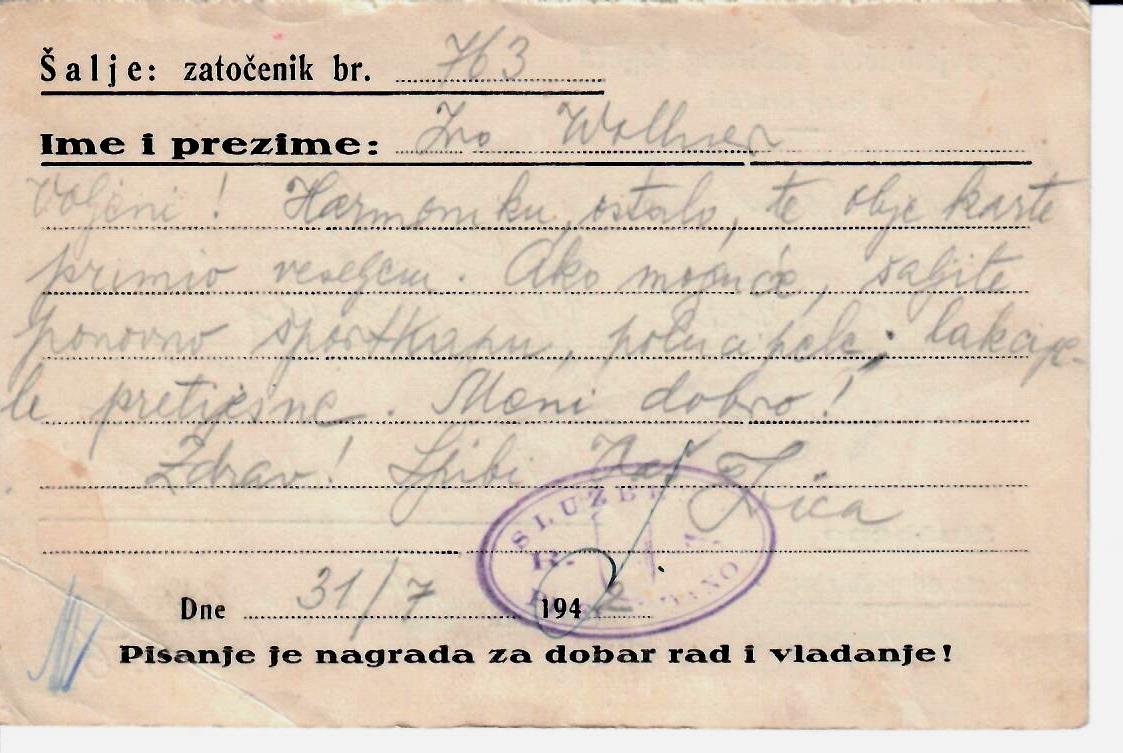 Šalje: zatočenik br. 763
Ime i prezime: Ivo Wollner
Voljeni! Harmoniku, ostalo, te obje karte
primio veseljem. Ako moguće, šaljite
ponovno športkapu, polucipele;
pretijesne. Meni dobro!
Zdrav! Ljubi Vas Ivica
SLUŽB
Dne 31/7 1942
Pisanje je nagrada za dobar rad i vladanje!